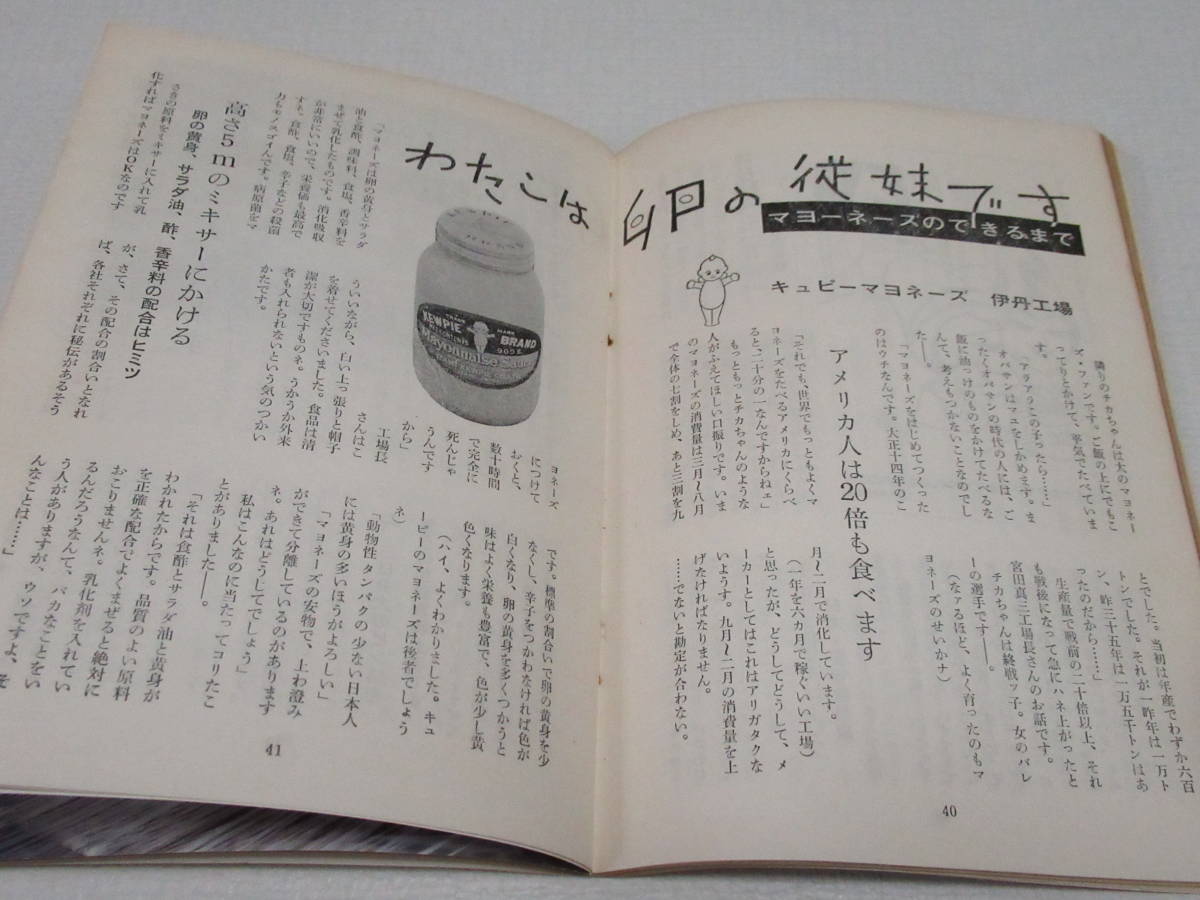 わたしは卵の従妹です
マヨーネーズのできるまで
キュピーマヨネーズ 伊丹工場
隣りのチカちゃんは大のマヨネー
ズ・ファンです。ご飯の上にでもこ
ってりとかけて、平気でたべていま
す。
「アラアラこの子ったら……」
オバサンはマュをしかめます。ま
ったくオバサンの時代の人には、ご
飯に油っけのものをかけてたべるな
んて、考えもつかないことなのでし
た――。
「マヨネーズをはじめてつくった
のはウチなんです。大正十四年のこ
とでした。当初は年産でわずか六百
トンでした。それが一昨年は一万ト
ン、昨三十五年は一万五千トンはあ
ったのだから……」
生産量で戦前の二十倍以上、それ
も戦後になって急にハネ上がったと
宮田真三工場長さんのお話です。
チカちゃんは終戦ッ子。女のバレ
ーの選手です――。
(なァるほど、よく育ったのもマ
ヨネーズのせいかナ)
アメリカ人は20倍も食べます
「それでも、世界でもっともよくマ
ヨネーズをたべるアメリカにくらべ
ると、二十分の一なんですからねェ」
もっともっとチカちゃんのような
人がふえてほしい口振りです。いま
のマヨネーズの消費量は三月〜八月
で全体の七割をしめ、あと三割を九
月〜二月で消化しています。
(一年を六カ月で稼ぐいい工場)
と思ったが、どうしてどうして、メ
ーカーとしてはこれはアリガタクな
いようす。九月〜二月の消費量を上
げたければなりません。
……でないと勘定が合わない。
40
「マヨネーズは卵の黄身とサラダ
油と食酢、調味料、食塩、香辛料を
まぜて乳化したものです。消化吸収
が非常にいいので、栄養価も最高で
すネ。食酢、食塩、辛子などの殺菌
力もモノスゴイんです。病原菌をマ
ヨネーズ
につけて
おくと、
数十時間
で完全に
死んじゃ
うんです
から」
工場長
さんはこ
ういいながら、白い上っ張りと帽子
を着せてくださいました。食品は清
潔が大切ですものネ。うかうか外来
者も入れられないという気のつかい
かたです。
KEWPIE BRAND
TRADE MARK
Mayonnaise Sauce
高さ5mのミキサーにかける
卵の黄身、サラダ油、酢、香辛料の配合はヒミツ
さきの原料をミキサーに入れて乳
化すればマヨネーズはOKなのです
が、さて、その配合の割合いとなれ
ば、各社それぞれに秘伝があるそう
です。標準の割合いで卵の黄身を少
なくし、辛子をつかわなければ色が
白くなり、卵の黄身を多くつかうと
味はよく栄養も豊富で、色が少し黄
色くなります。
(ハイ、よくわかりました。キュ
ーピーのマヨネーズは後者でしょう
ネ)
「動物性タンパクの少ない日本人
には黄身の多いほうがよろしい」
「マヨネーズの安物で、上わ澄み
ができて分離しているのがあります
ネ。あれはどうしてでしょう」
私はこんなのに当たってコリたこ
とがありました――。
「それは食酢とサラダ油と黄身が
わかれたからです。品質のよい原料
を正確な配合でよくまぜると絶対に
おこりませんネ。乳化剤を入れてい
るんだろうなんて、バカなことをい
う人がありますが、ウソですよ、そ
んなことは……」
41